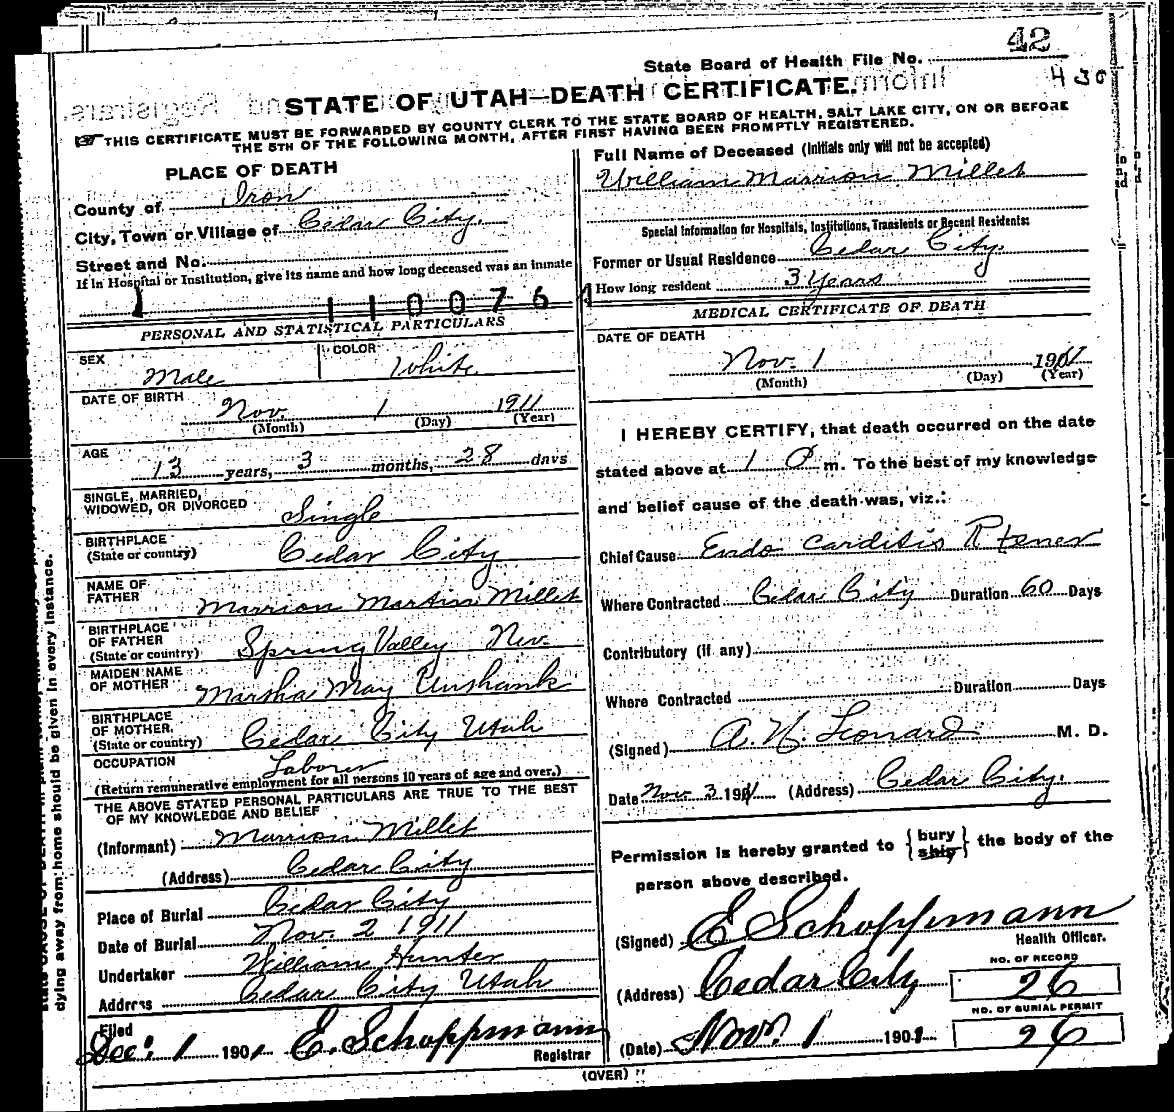 42
State Board of Health File No.
430
STATE OF UTAH—DEATH CERTIFICATE.
THIS CERTIFICATE MUST BE FORWARDED BY COUNTY CLERK TO THE STATE BOARD OF HEALTH, SALT LAKE CITY, ON OR BEFORE
THE 5TH OF THE FOLLOWING MONTH, AFTER FIRST HAVING BEEN PROMPTLY REGISTERED.
PLACE OF DEATH
County of Iron
City, Town or Village of Cedar City.
Street and No.
If in Hospital or Institution, give its name and how long deceased was an inmate
1 110076
PERSONAL AND STATISTICAL PARTICULARS
SEX Male
COLOR White
DATE OF BIRTH Nov. 1 1911
(Month) (Day) (Year)
AGE 13 years, 3 months, 28 days
SINGLE, MARRIED,
WIDOWED, OR DIVORCED Single
BIRTHPLACE
(State or country) Cedar City
NAME OF
FATHER Marrion Martin Millet
BIRTHPLACE
OF FATHER
(State or country) Spring Valley Nev.
MAIDEN NAME
OF MOTHER Marsha May
BIRTHPLACE
OF MOTHER.
(State or country) Cedar City Utah
OCCUPATION Laborer
(Return remunerative employment for all persons 10 years of age and over.)
THE ABOVE STATED PERSONAL PARTICULARS ARE TRUE TO THE BEST
OF MY KNOWLEDGE AND BELIEF
(Informant) Marrion Millet
(Address) Cedar City
Place of Burial Cedar City
Date of Burial Nov. 2 1911
Undertaker William Hunter
Address Cedar City Utah
Filed
Dec. 1 1901 E. Schoppmann
Registrar
Full Name of Deceased (Initials only will not be accepted)
William Marrion Millet
Special Information for Hospitals, Institutions, Transients or Recent Residents:
Former or Usual Residence Cedar City.
How long resident 3 Years
MEDICAL CERTIFICATE OF DEATH
DATE OF DEATH
Nov. 1 1911
(Month) (Day) (Year)
I HEREBY CERTIFY, that death occurred on the date
stated above at 1 P m. To the best of my knowledge
and belief cause of the death was, viz.:
Chief Cause Endo carditis
Where Contracted Cedar City Duration 60 Days
Contributory (if any)
Where Contracted Duration Days
(Signed) A. N. Leonard M. D.
Date Nov 3 1911 (Address) Cedar City.
Permission is hereby granted to { bury ship } the body of the
person above described.
(Signed) E Schoppmann
Health Officer.
(Address) Cedar City
NO. OF RECORD
26
NO. OF BURIAL PERMIT
26
(Date) Nov. 1 1901
(OVER)
dying away from home should be given in every instance.